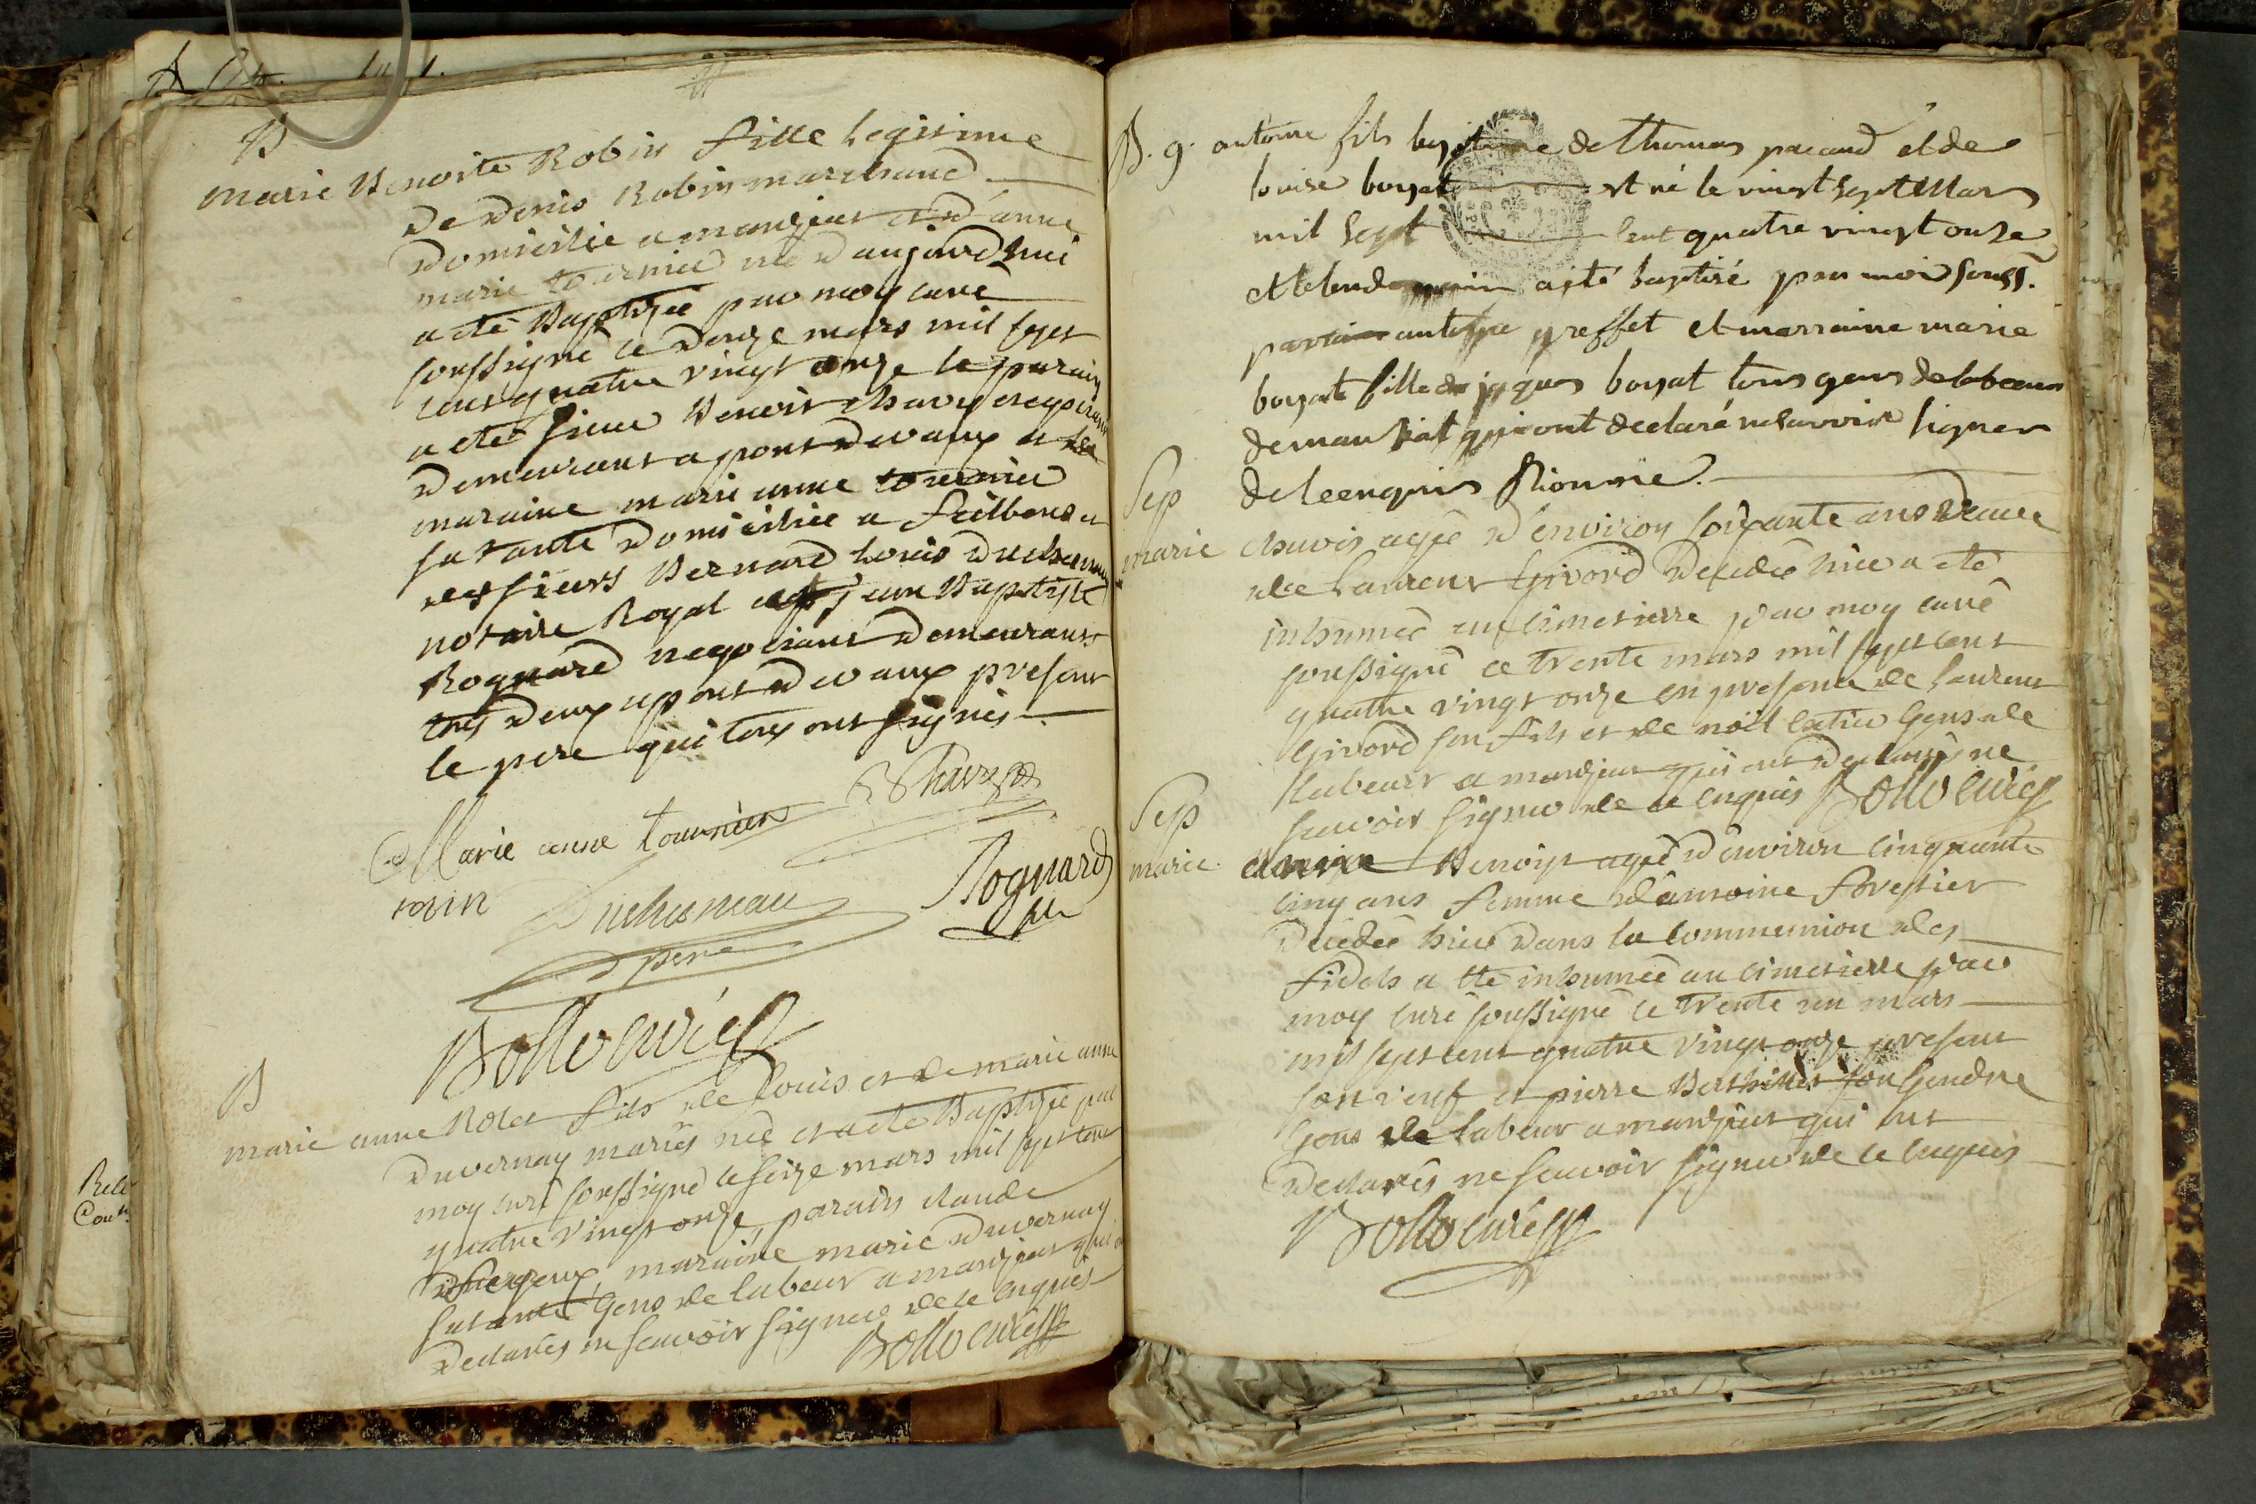 B
marie Benoite Robin fille legitime
de denis Robin marchand
domicilié a manziat et d'anne
marie tournier née d'aujourd'hui
a eté Baptizée par moy curé
soussigné ce douze mars mil sept
cent quatre vingt onze le parain
a eté sieur Benoit chavy negociant
demeurant a pont de vaux et la
maraine marie anne tournier
sa tante domiciliée a feillens et
les sieurs Bernard louis duchesneau
notaire Royal et jean Baptiste
Rognard negociant demeurants
tous deux a pont de vaux present
le pere qui tous ont signés
Marie anne tournier
B Chavy
robin
Duchesneau
Rognard
père
Bollo curé
B
marie anne Rolet fils de louis et de marie anne
duvernay mariés née et a eté Baptizée par
moy curé soussigné le seize mars mil sept cent
quatre vingt onze, parain claude
maraine marie duvernay
sa tante gens de labeur a manziat qui
declarés ne scavoir signer de ce enquis
Bollo curé
B. g. antoine fils legitime de Thomas pacaud et de
louise boyat est né le vingt sept Mars
mil sept cent quatre vingt onze
et le lendemain a été baptisé par moi souss.
parrain antoine greffet et marraine marie
boyat fille de jaques boyat tous gens de labeur
de manziat qui ont declaré ne savoir signer
de ce enquis
Sep
marie chavis agée d'environ soixante ans veuve
de laurent givord decedée hier a eté
inhumée au cimetierre par moy curé
soussigné ce trente mars mil sept cent
quatre vingt onze en presence de laurent
givord son fils et de noël catin gens de
labeur a manziat qui ont declarés ne
scavoir signer de ce enquis Bollo curé
Sep
marie Benoist agée d'environ cinquante
cinq ans femme d'antoine forestier
decedée hier dans la communion des
fidels a eté inhumée au cimetierre par
moy curé soussigné le trente un mars
mil sept cent quatre vingt onze present
son veuf et pierre Berthillet son gendre
gens de labeur a manziat qui ont
declarés ne scavoir signer de ce enquis
Bollo curé